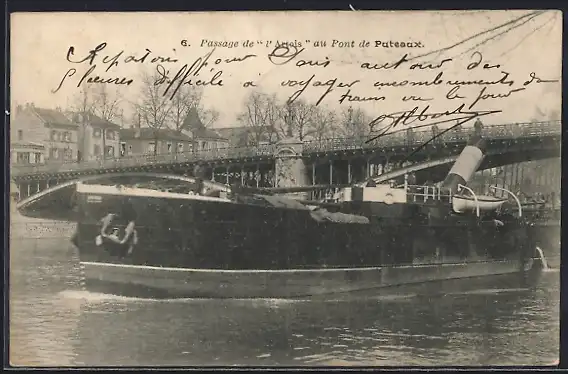 6. Passage de "l'Artois" au Pont de Puteaux.
Repartons pour Paris autour des
5 heures difficile à voyager encombrements de
trains vu le jour
Albert